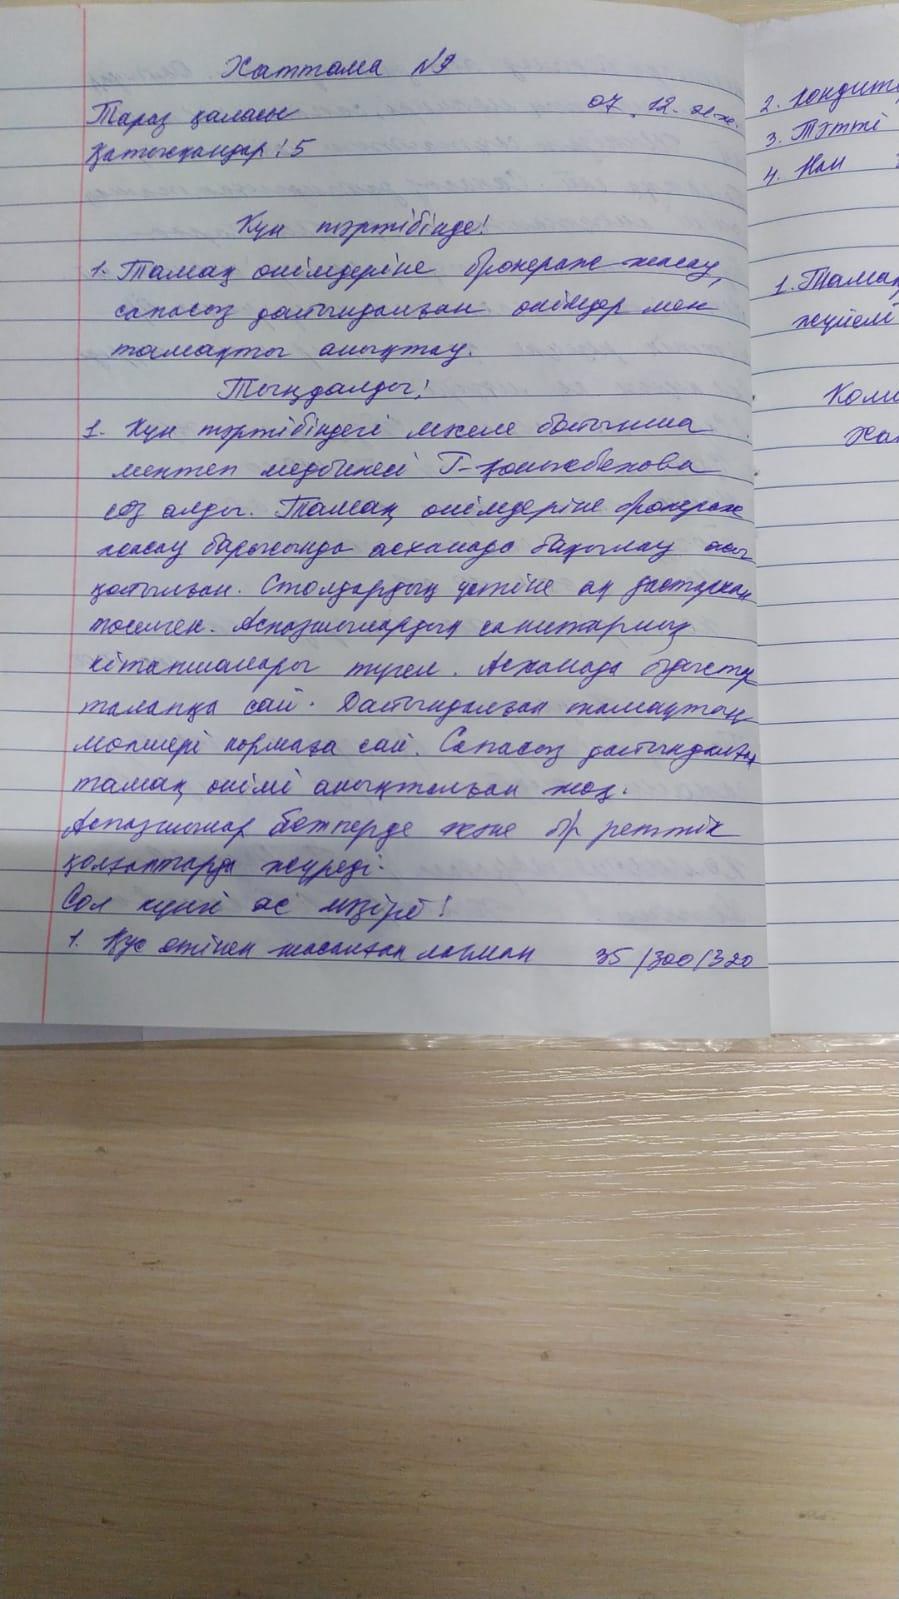 Хаттама №9
Тараз қаласы 07.12.21-ж.
Қатысқандар: 5
Күн тәртібінде:
1. Тамақ өнімдеріне бракераж жасау,
сапасыз дайындалған өнімдер мен
тамақты анықтау.
Тыңдалды:
1. Күн тәртібіндегі мәселе бойынша
мектеп медбикесі Г-
сөз алды. Тамақ өнімдеріне бракераж
жасау барысында асханада бақылау асы
қойылған. Столдардың үстіне ақ дастархан
төселген. Аспазшылардың санитарлық
кітапшалары түгел. Асханада ыдыстар
талапқа сай. Дайындалған тамақтың
мөлшері нормаға сай. Сапасыз дайындалған
тамақ өнімі анықталған жоқ.
Аспазшылар бетперде және бір реттік
қолғаптарда жүреді.
Сол күнгі ас мәзірі:
1. Құс етінен жасалған лағман 35/300/320
2. Кондите
3. Тәтті
4. Нан
1. Тамақ
жүйелі